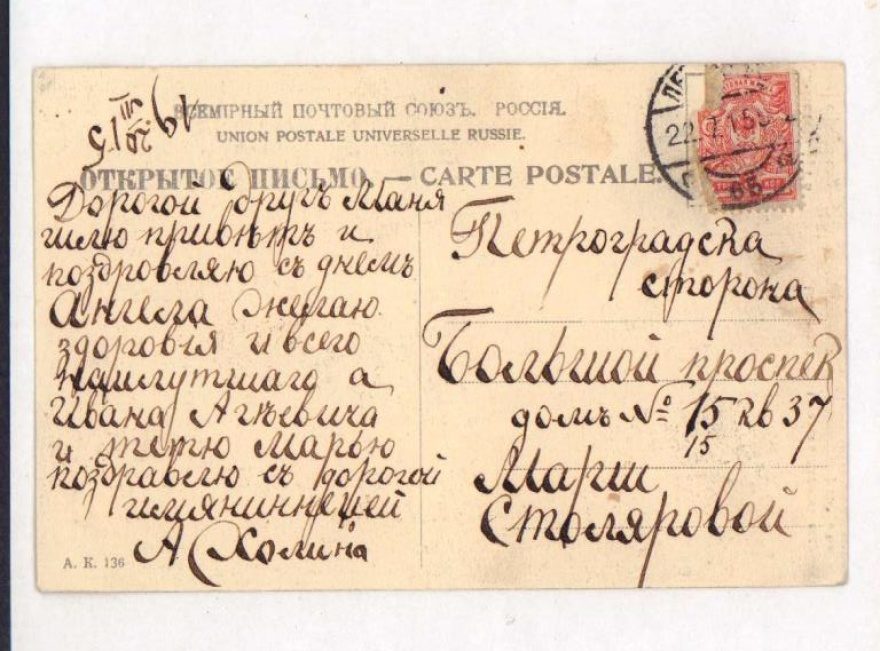 19 20/VII 15
ВСЕМІРНЫЙ ПОЧТОВЫЙ СОЮЗЪ. РОССІЯ.
UNION POSTALE UNIVERSELLE RUSSIE.
ОТКРЫТОЕ ПИСЬМО. — CARTE POSTALE.
Дорогой другъ Маня
шлю привѣтъ и
поздровляю съ днемъ
Ангела желаю
здоровія и всего
наилутшаго а
Ивана Агѣевича
и тетю Марью
поздравлю съ дорогой
имянинницей
А Холина
Петроградска
сторона
Большой проспек
домъ № 15 кв 37
15
Маріи
Столяровой
А. К. 136